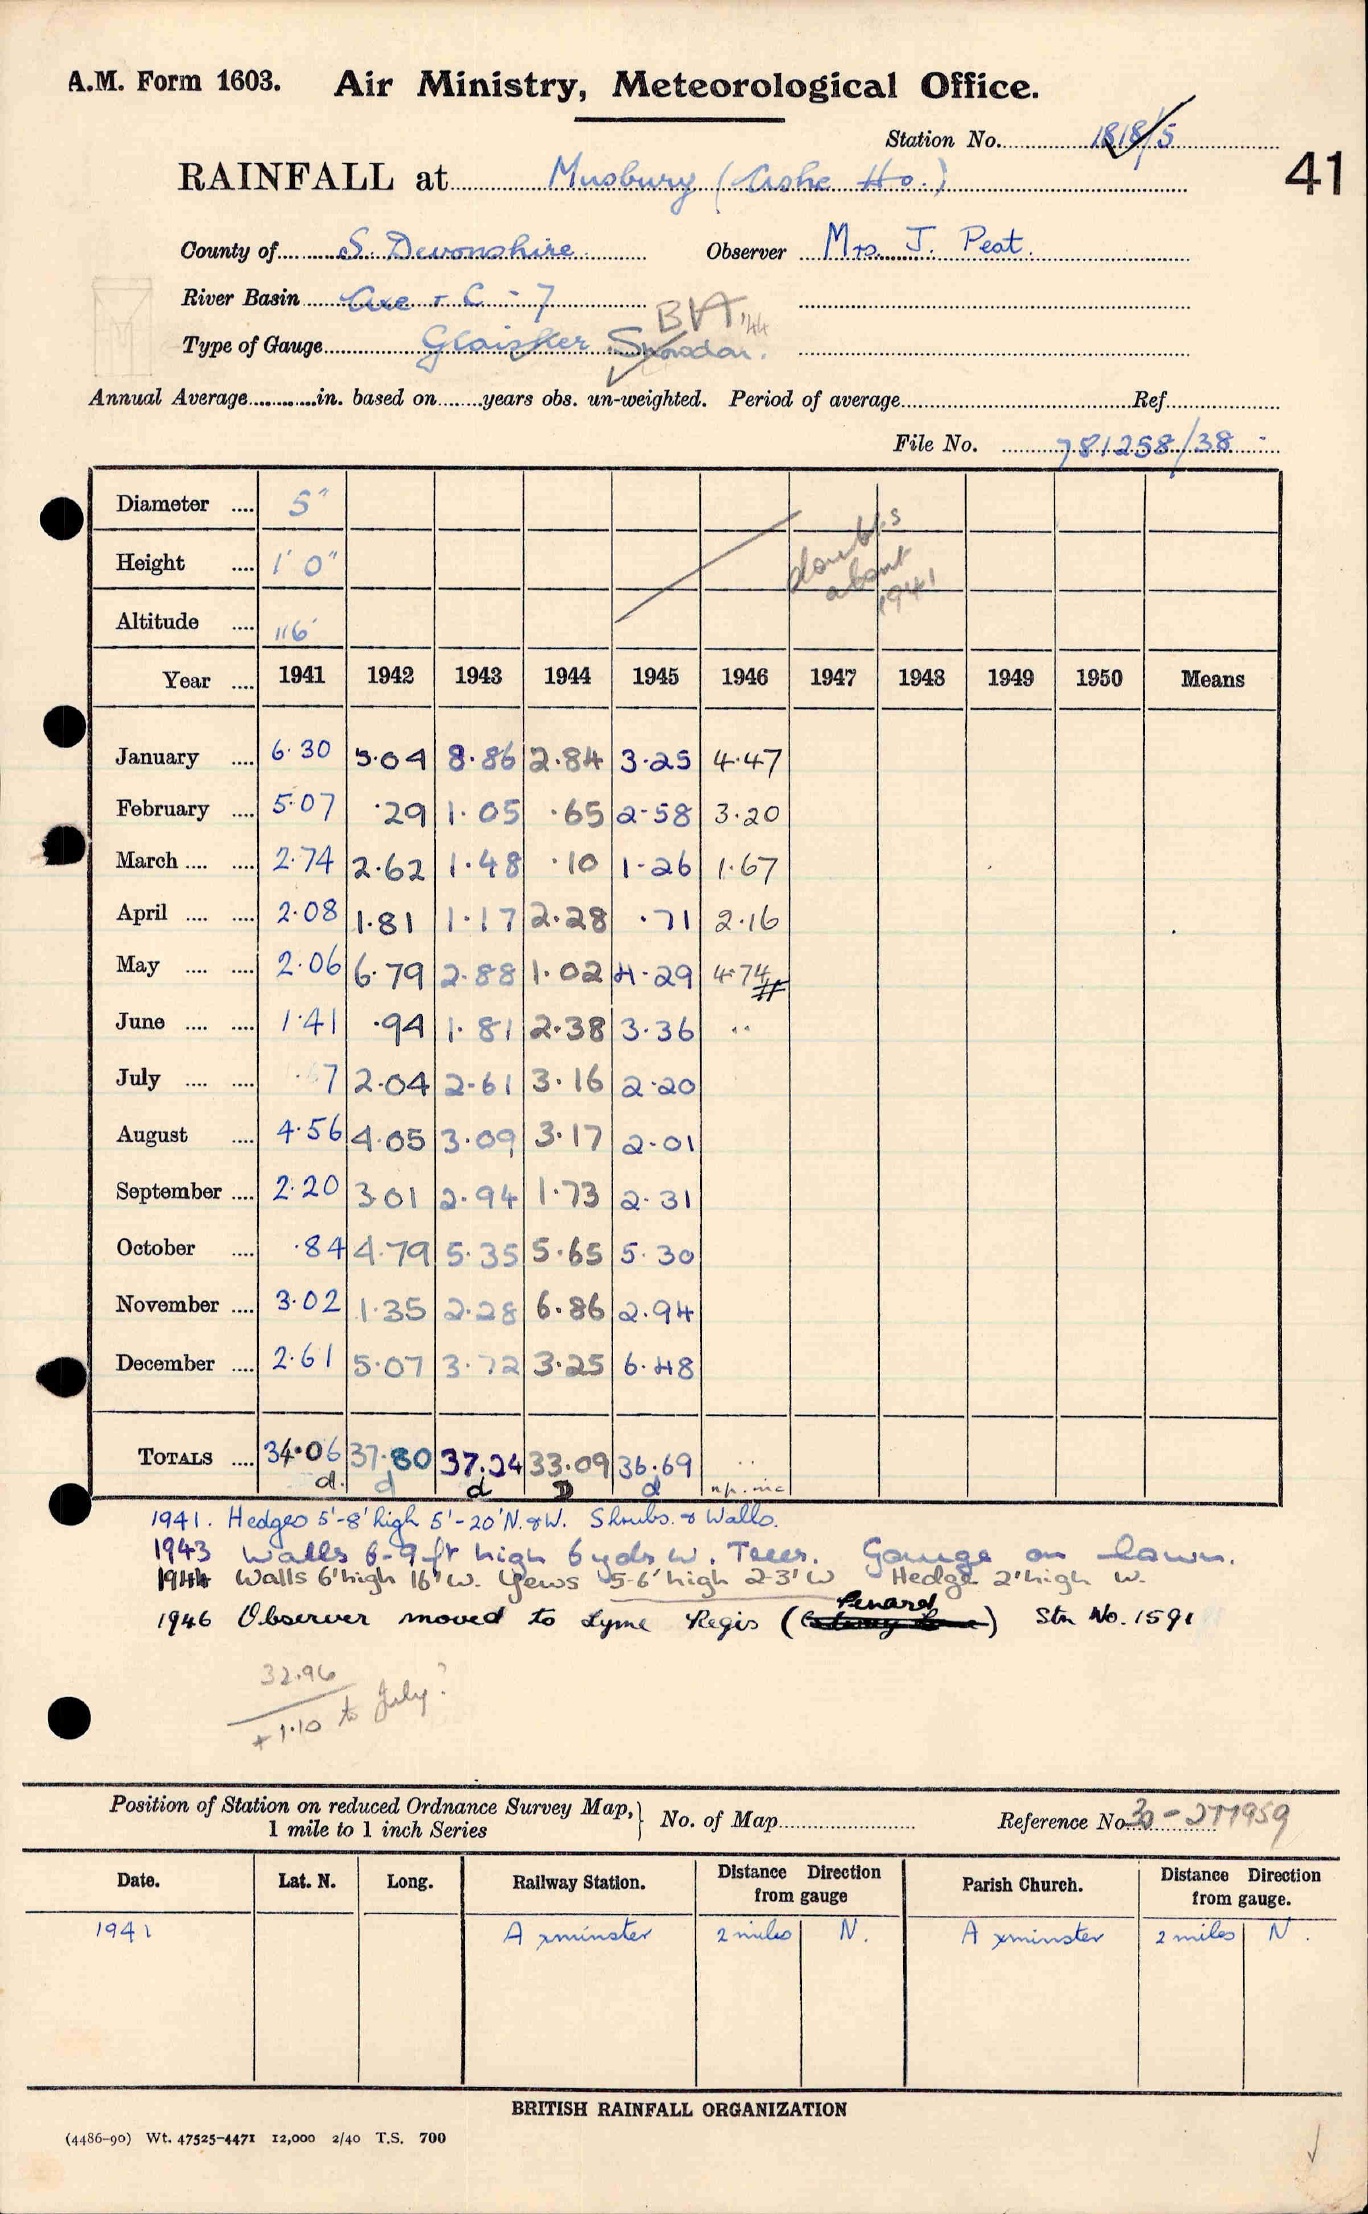 A.M. Form 1603. Air Ministry, Meteorological Office.
Station No. 1818/5
41
RAINFALL at Musbury (Ashe Ho.)
County of S. Devonshire Observer Mrs. J. Peat.
River Basin Axe + C - 7
BA '44
Type of Gauge Glaisher Snowdon.
Annual Average in. based on years obs. un-weighted. Period of average Ref.
File No. 781258/38
Diameter 5"
Height 1' 0"
Altitude 116'
doubts
about
1941
Year 1941 1942 1943 1944 1945 1946 1947 1948 1949 1950 Means
January 6.30 5.04 8.86 2.84 3.25 4.47
February 5.07 .29 1.05 .65 2.58 3.20
March 2.74 2.62 1.48 .10 1.26 1.67
April 2.08 1.81 1.17 2.28 .71 2.16
May 2.06 6.79 2.88 1.02 4.29 4.74 #
June 1.41 .94 1.81 2.38 3.36 ..
July .67 2.04 2.61 3.16 2.20
August 4.56 4.05 3.09 3.17 2.01
September 2.20 3.01 2.94 1.73 2.31
October .84 4.79 5.35 5.65 5.30
November 3.02 1.35 2.28 6.86 2.94
December 2.61 5.07 3.72 3.25 6.48
TOTALS 34.06 37.80 37.24 33.09 36.69 ..
d. d d D d n.p. inc
1941. Hedges 5'-8' high 5'-20' N. & W. Shrubs. & Walls.
1943 Walls 6-9ft high 6yds W. Trees. Gauge on lawn.
1944 Walls 6' high 16' W. Yews 5-6' high 2-3' W Hedge 2' high W.
Penard
1946 Observer moved to Lyme Regis ( ) Stn No. 1591
32.96
+1.10 to July?
Position of Station on reduced Ordnance Survey Map, } No. of Map Reference No. 30 - 277959
1 mile to 1 inch Series
Date. Lat. N. Long. Railway Station. Distance Direction from gauge Parish Church. Distance Direction from gauge.
1941 Axminster 2 miles N. Axminster 2 miles N.
BRITISH RAINFALL ORGANIZATION
(4486-90) Wt. 47525-4471 12,000 2/40 T.S. 700